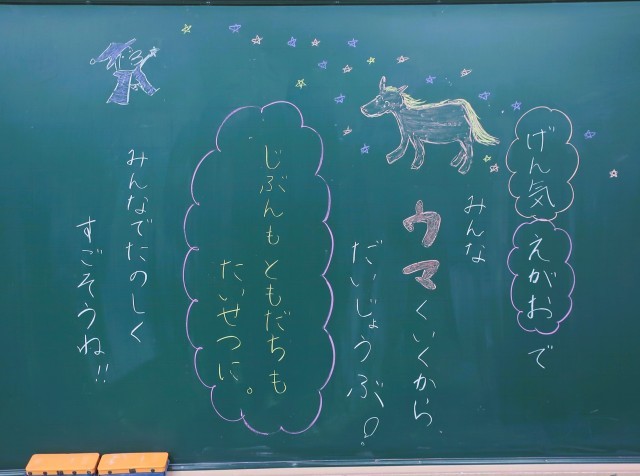 げん気 えがおで
みんな
ウマくいくから、
だいじょうぶ!
じぶんも ともだちも
たいせつに。
みんなでたのしく
すごそうね!!